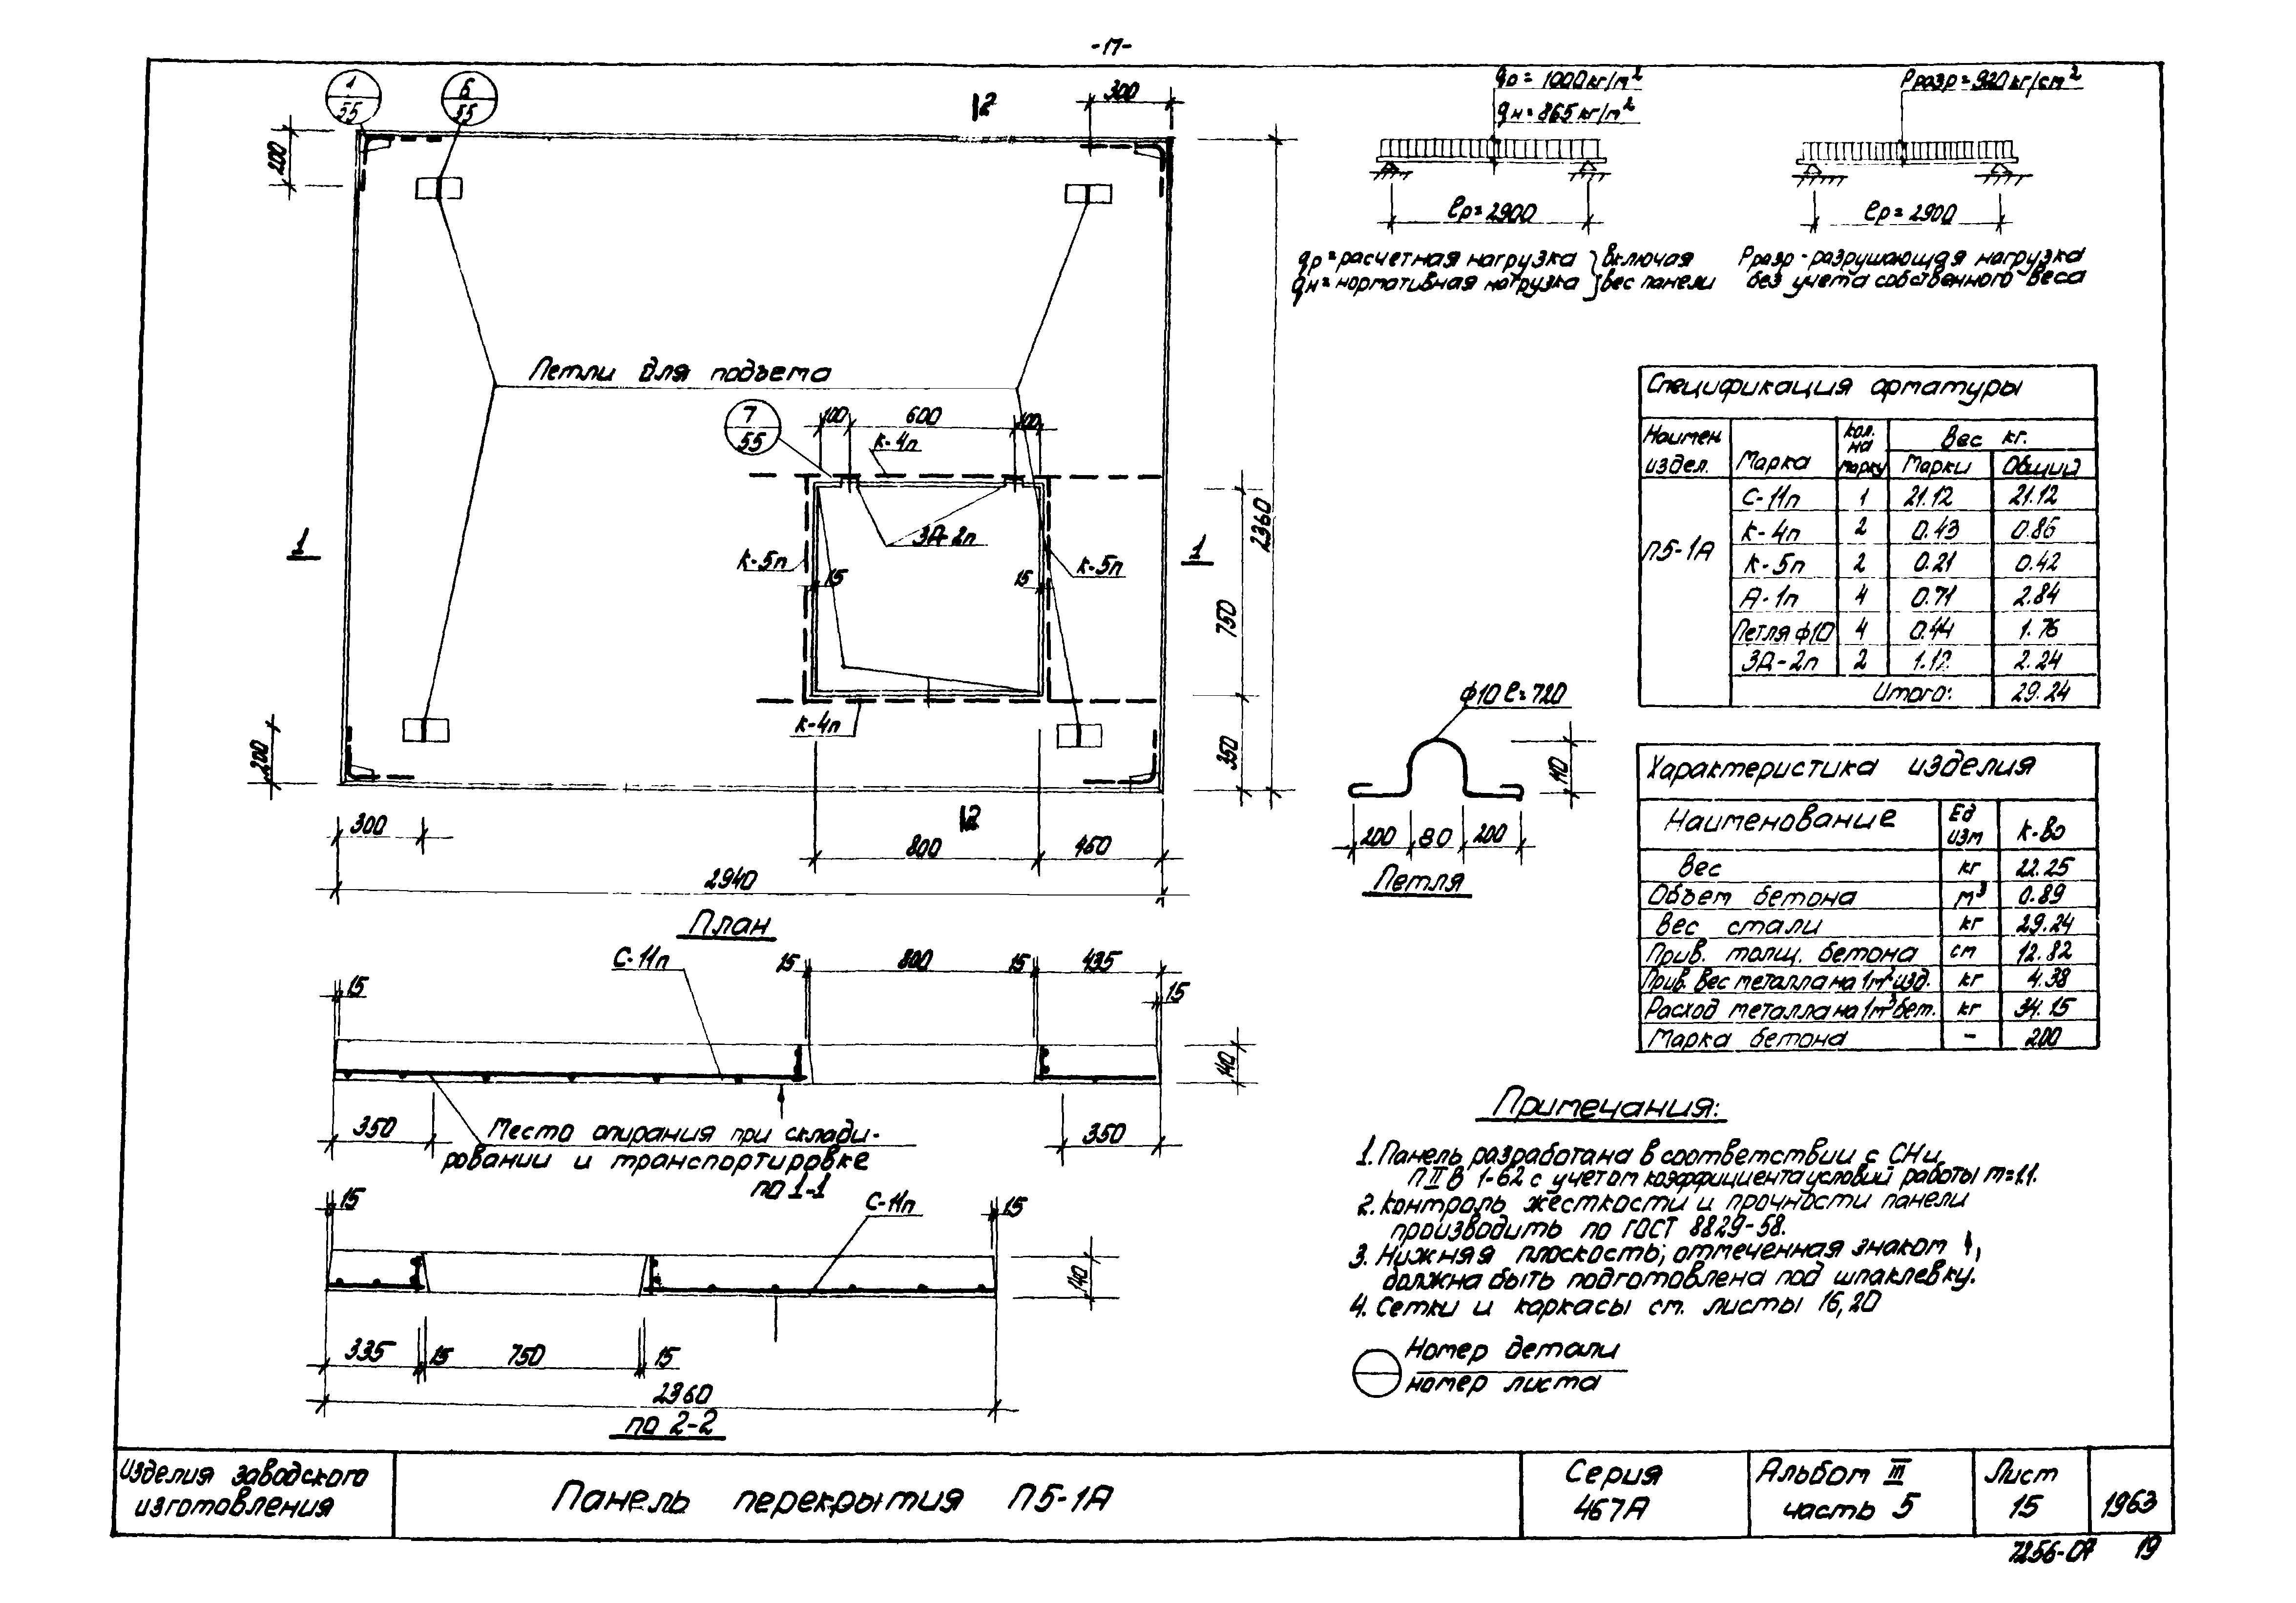 -17-
1
55
6
55
200
300
2
Петли для подъема
7
55
100
600
100
К-4п
ЗД-2п
К-5п
К-5п
15
15
1
1
К-4п
2360
750
350
200
300
2
800
460
2940
План
С-11п
15
15
800
15
435
15
140
350
Место опирания при склади-
ровании и транспортировке
350
по 1-1
15
С-11п
15
140
335
15
750
15
2360
по 2-2
qр = 1000 кг/м²
qн = 865 кг/м²
ℓр = 2900
qр = расчетная нагрузка } включая
qн = нормативная нагрузка } вес панели
Рразр = 920 кг/см²
ℓр = 2900
Рразр - разрушающая нагрузка
без учета собственного веса
Спецификация арматуры
Наимен. издел. Марка Кол. на марку Вес кг.
Марки Общий
П5-1А
С-11п 1 21.12 21.12
К-4п 2 0.43 0.86
К-5п 2 0.21 0.42
А-1п 4 0.71 2.84
Петля ф10 4 0.44 1.76
ЗД-2п 2 1.12 2.24
Итого: 29.24
ф10 ℓ=720
110
200
80
200
Петля
Характеристика изделия
Наименование Ед изм К-во
Вес кг 22.25
Объем бетона м³ 0.89
Вес стали кг 29.24
Прив. толщ. бетона см 12.82
Прив. вес металла на 1м² изд. кг 4.38
Расход металла на 1м³ бет. кг 34.15
Марка бетона - 200
Примечания:
1. Панель разработана в соответствии с СНи
П II В 1-62 с учетом коэффициента условий работы m=1.1.
2. Контроль жесткости и прочности панели
производить по ГОСТ 8829-58.
3. Нижняя плоскость, отмеченная знаком ↑,
должна быть подготовлена под шпаклевку.
4. Сетки и каркасы см. листы 16, 20
Номер детали
номер листа
Изделия заводского
изготовления
Панель перекрытия П5-1А
Серия
467А
Альбом III
часть 5
Лист
15
1963
7256-07 19